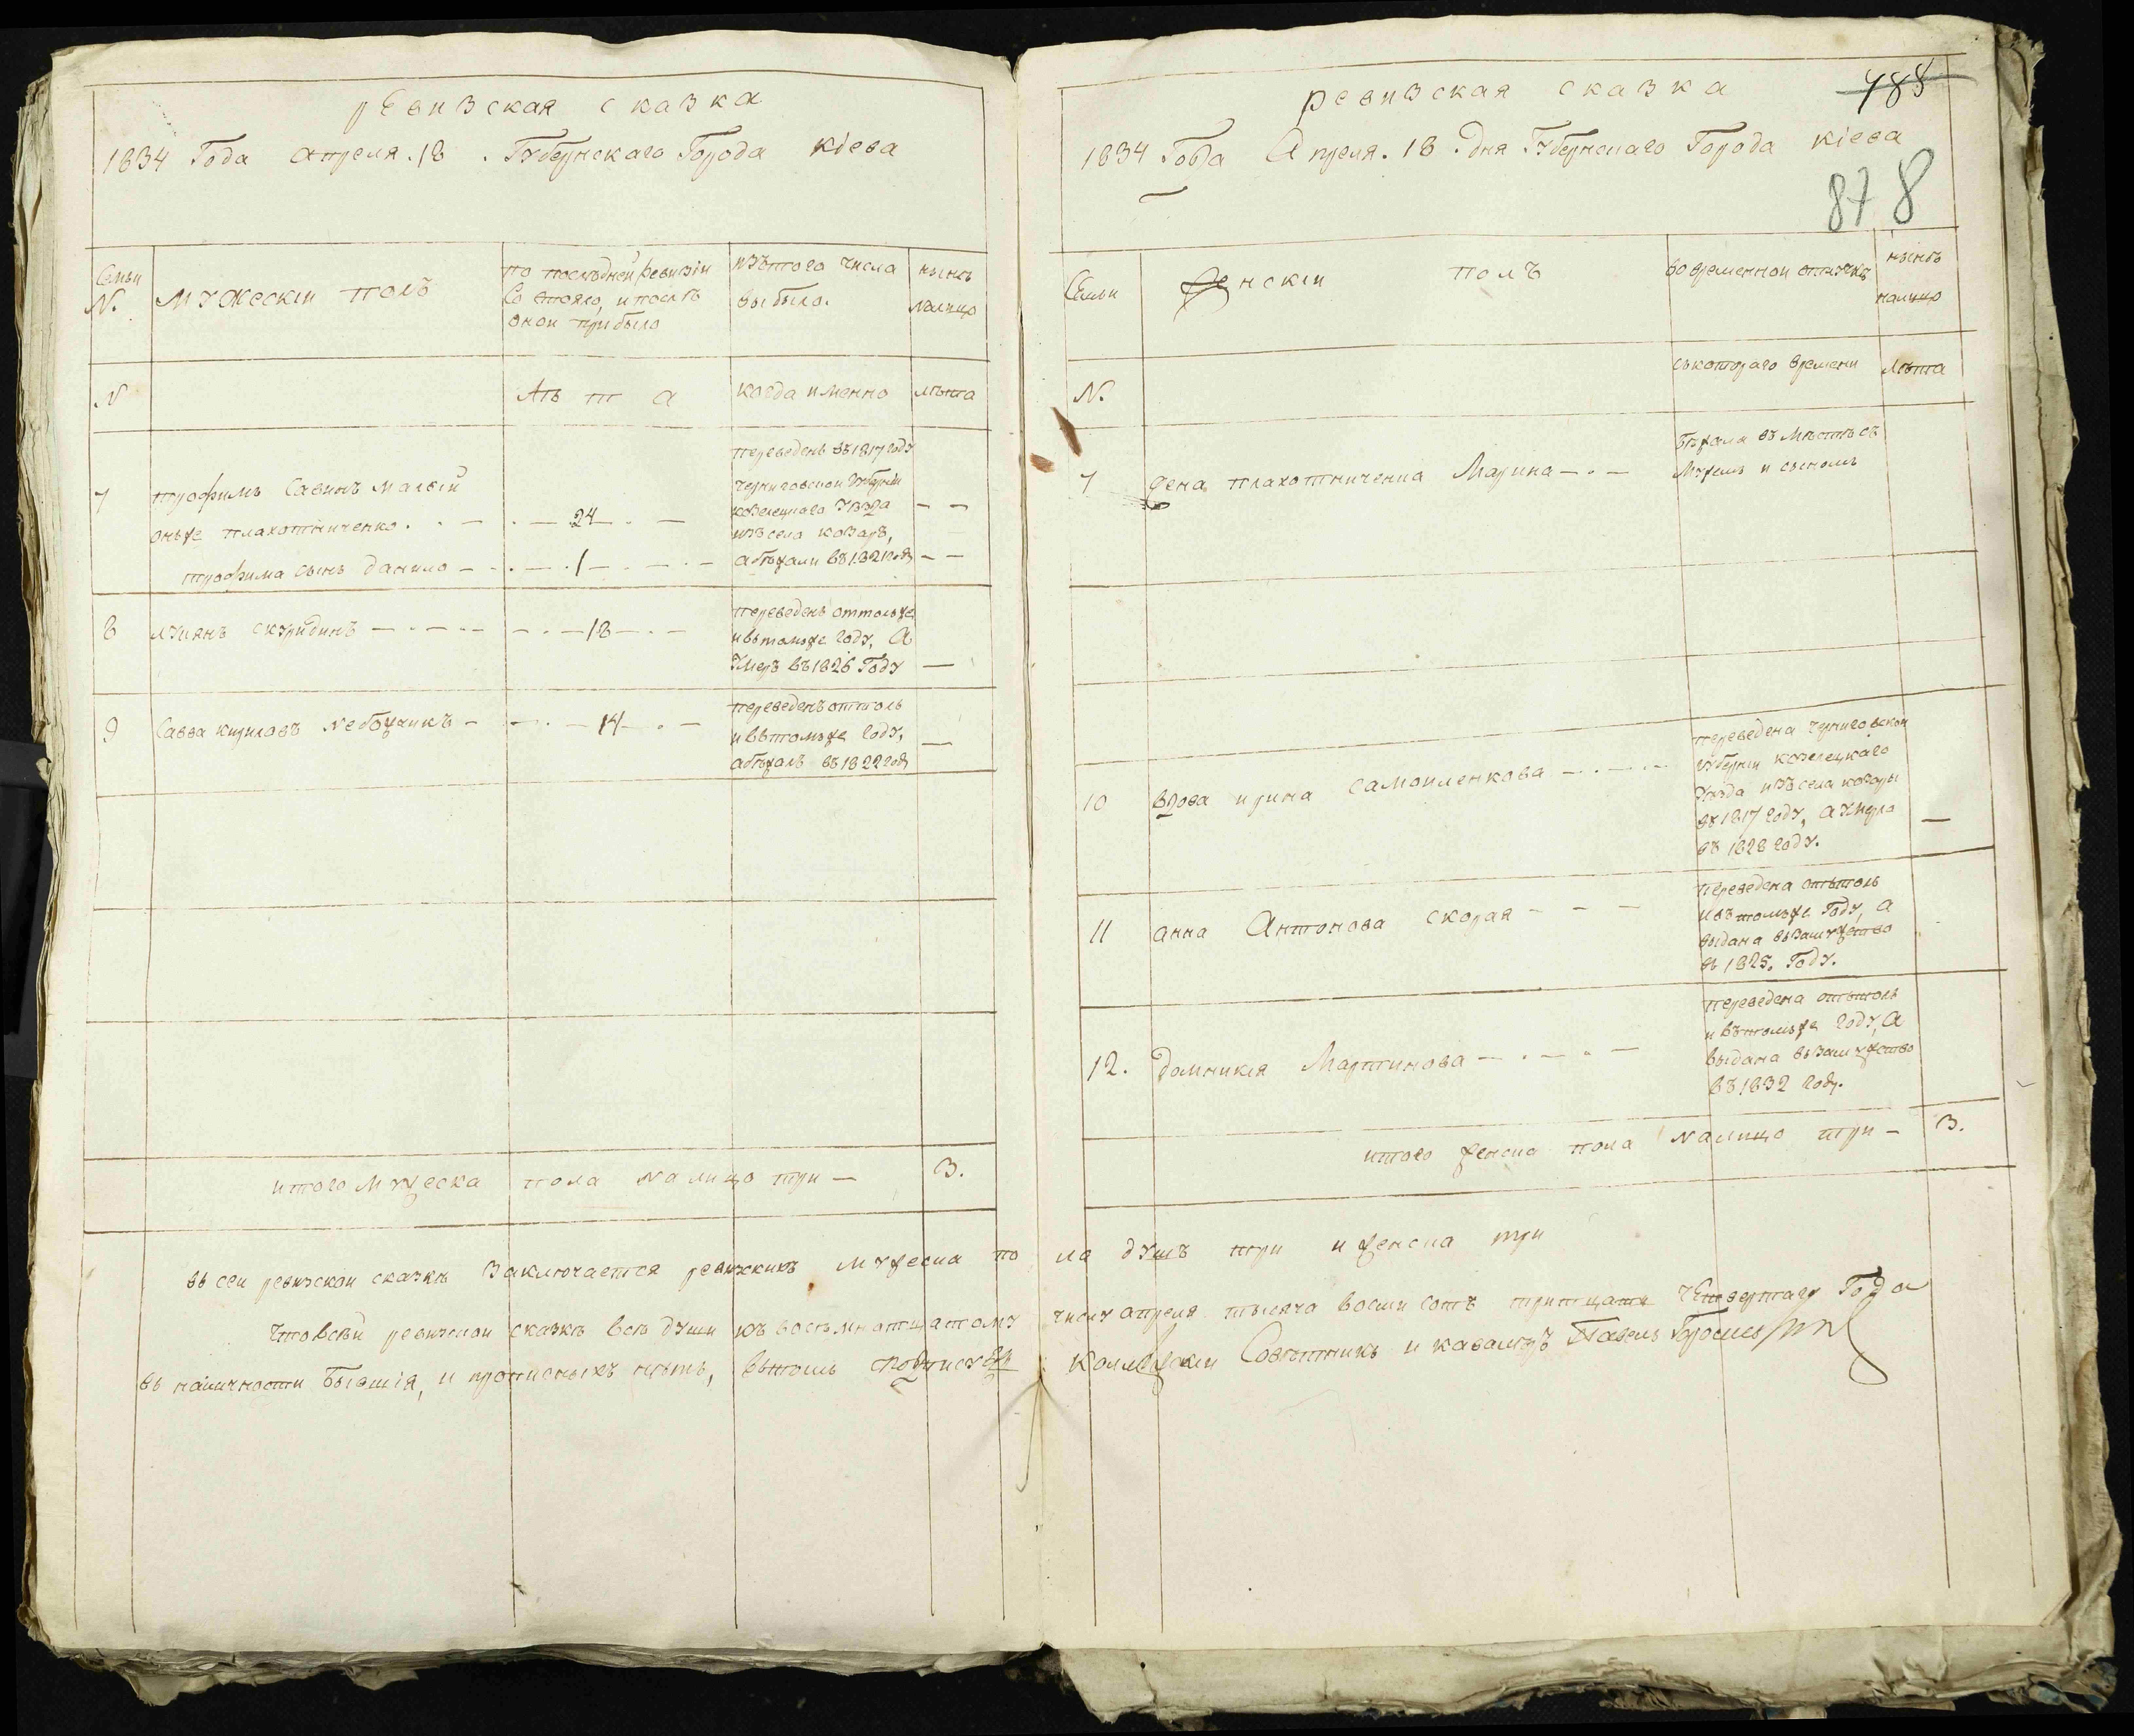 рЕвизская сказка
1834 Года апреля. 18 . Губернскаго Города кіева
Семьи
N.
мужескіи полъ
по последней ревизіи
Состояло, и после
оной прибыло
изътого числа
выбыло.
нынѣ
налицо
N
Лѣта
когда именно
лѣта
7
трофимъ Савинъ малый
онъже плахотниченко
24
переведенъ въ 1817 году
черниговской Губерніи
козелецкаго Уезда
изъ села козаръ,
абѣжали въ 1821 годѣ
трофима сынъ данило
1
8
лукянъ скуридинъ
18
переведенъ оттольже
ивътомъже году, А
Умеръ въ 1826 Году
9
Савва кириловъ Небожчикъ
14
переведенъ оттоль
ивътомъже году,
абѣжалъ въ 1822 годѣ
итого мужеска пола налицо три
3.
ревизская сказка
488
1834 Года Апреля. 18 дня Губернскаго Города кіева
878
Семьи
женскіи полъ
во временной отлучкѣ
нынѣ
налицо
N.
съкотораго времени
лѣта
7
жена плахотниченка Марина
Бѣжала въ мѣстѣ съ
Мужемъ и сыномъ
10
вдова ирина самоиленкова
переведена черниговской
Губерніи козелецкаго
Уезда изъ села козары
въ 1817 году, а Умерла
въ 1828 году.
11
анна Антонова скорая
переведена отътоль
ивътомъже Году, а
выдана взамужство
въ 1825. Году.
12.
домникия Мартинова
переведена отътоль
ивътомъже году, А
выдана взамужство
въ 1832 году.
итого женска пола налицо три
3.
въ сеи ревизскои сказкѣ Заключается ревижкихъ мужеска пола душъ три и женска три
Что всеи ревизскои сказкѣ всѣ души къ восемнатцатому числу апреля тысяча восми сотъ тритцать чЕтвертаго Года
въ наличности Бывшія, и прописныхъ нѣтъ, вътомъ подписуюсь колежскіи Советникъ и кавалеръ Павелъ